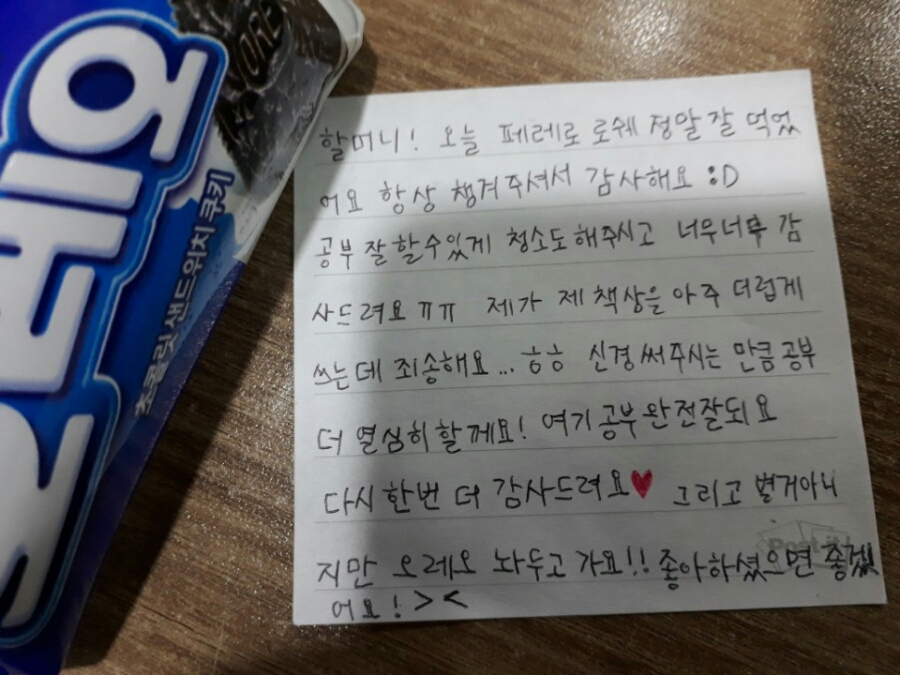 오레오
초콜릿 샌드위치 쿠키
OREO
할머니! 오늘 페레로 로쉐 정말 잘 먹었
어요 항상 챙겨주셔서 감사해요 :D
공부 잘 할 수 있게 청소도 해주시고 너무너무 감
사드려요 ㅠㅠ 제가 제 책상을 아주 더럽게
쓰는데 죄송해요... ㅎㅎ 신경써주시는 만큼 공부
더 열심히 할께요! 여기 공부 완전 잘되요
다시 한번 더 감사드려요♥ 그리고 별거아니
지만 오레오 놔두고 가요!! 좋아하셨으면 좋겠
어요! ><
Post-it